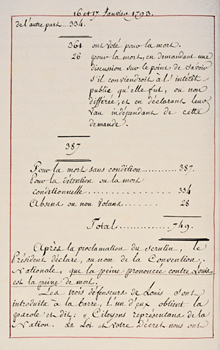 16 et 17 Janvier 1793.
de l'autre part... 334.
361 ont voté pour la mort.
26 pour la mort, en demandant une
discussion sur le point de savoir
s'il conviendroit à l'intérêt
public qu'elle fut, ou non
différée, et en déclarant leur
vœu indépendant de cette
demande.
387
Pour la mort sans condition......387.
Pour la détention ou la mort
conditionnelle......334
Absens ou non votans......28
Total......749.
Après la proclamation du scrutin, le
Président déclare, au nom de la Convention
Nationale, que la peine prononcée contre Louis
est la peine de mort.
Les trois défenseurs de Louis sont
introduits à la barre, l'un d'eux obtient la
parole et dit; Citoyens représentans de la
Nation. La Loi et votre Décret nous ont